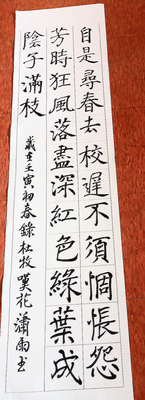 自是尋春去校遲不須惆悵怨
芳時狂風落盡深紅色綠葉成
陰子滿枝
歲在壬寅初春錄杜牧嘆花瀟雨书